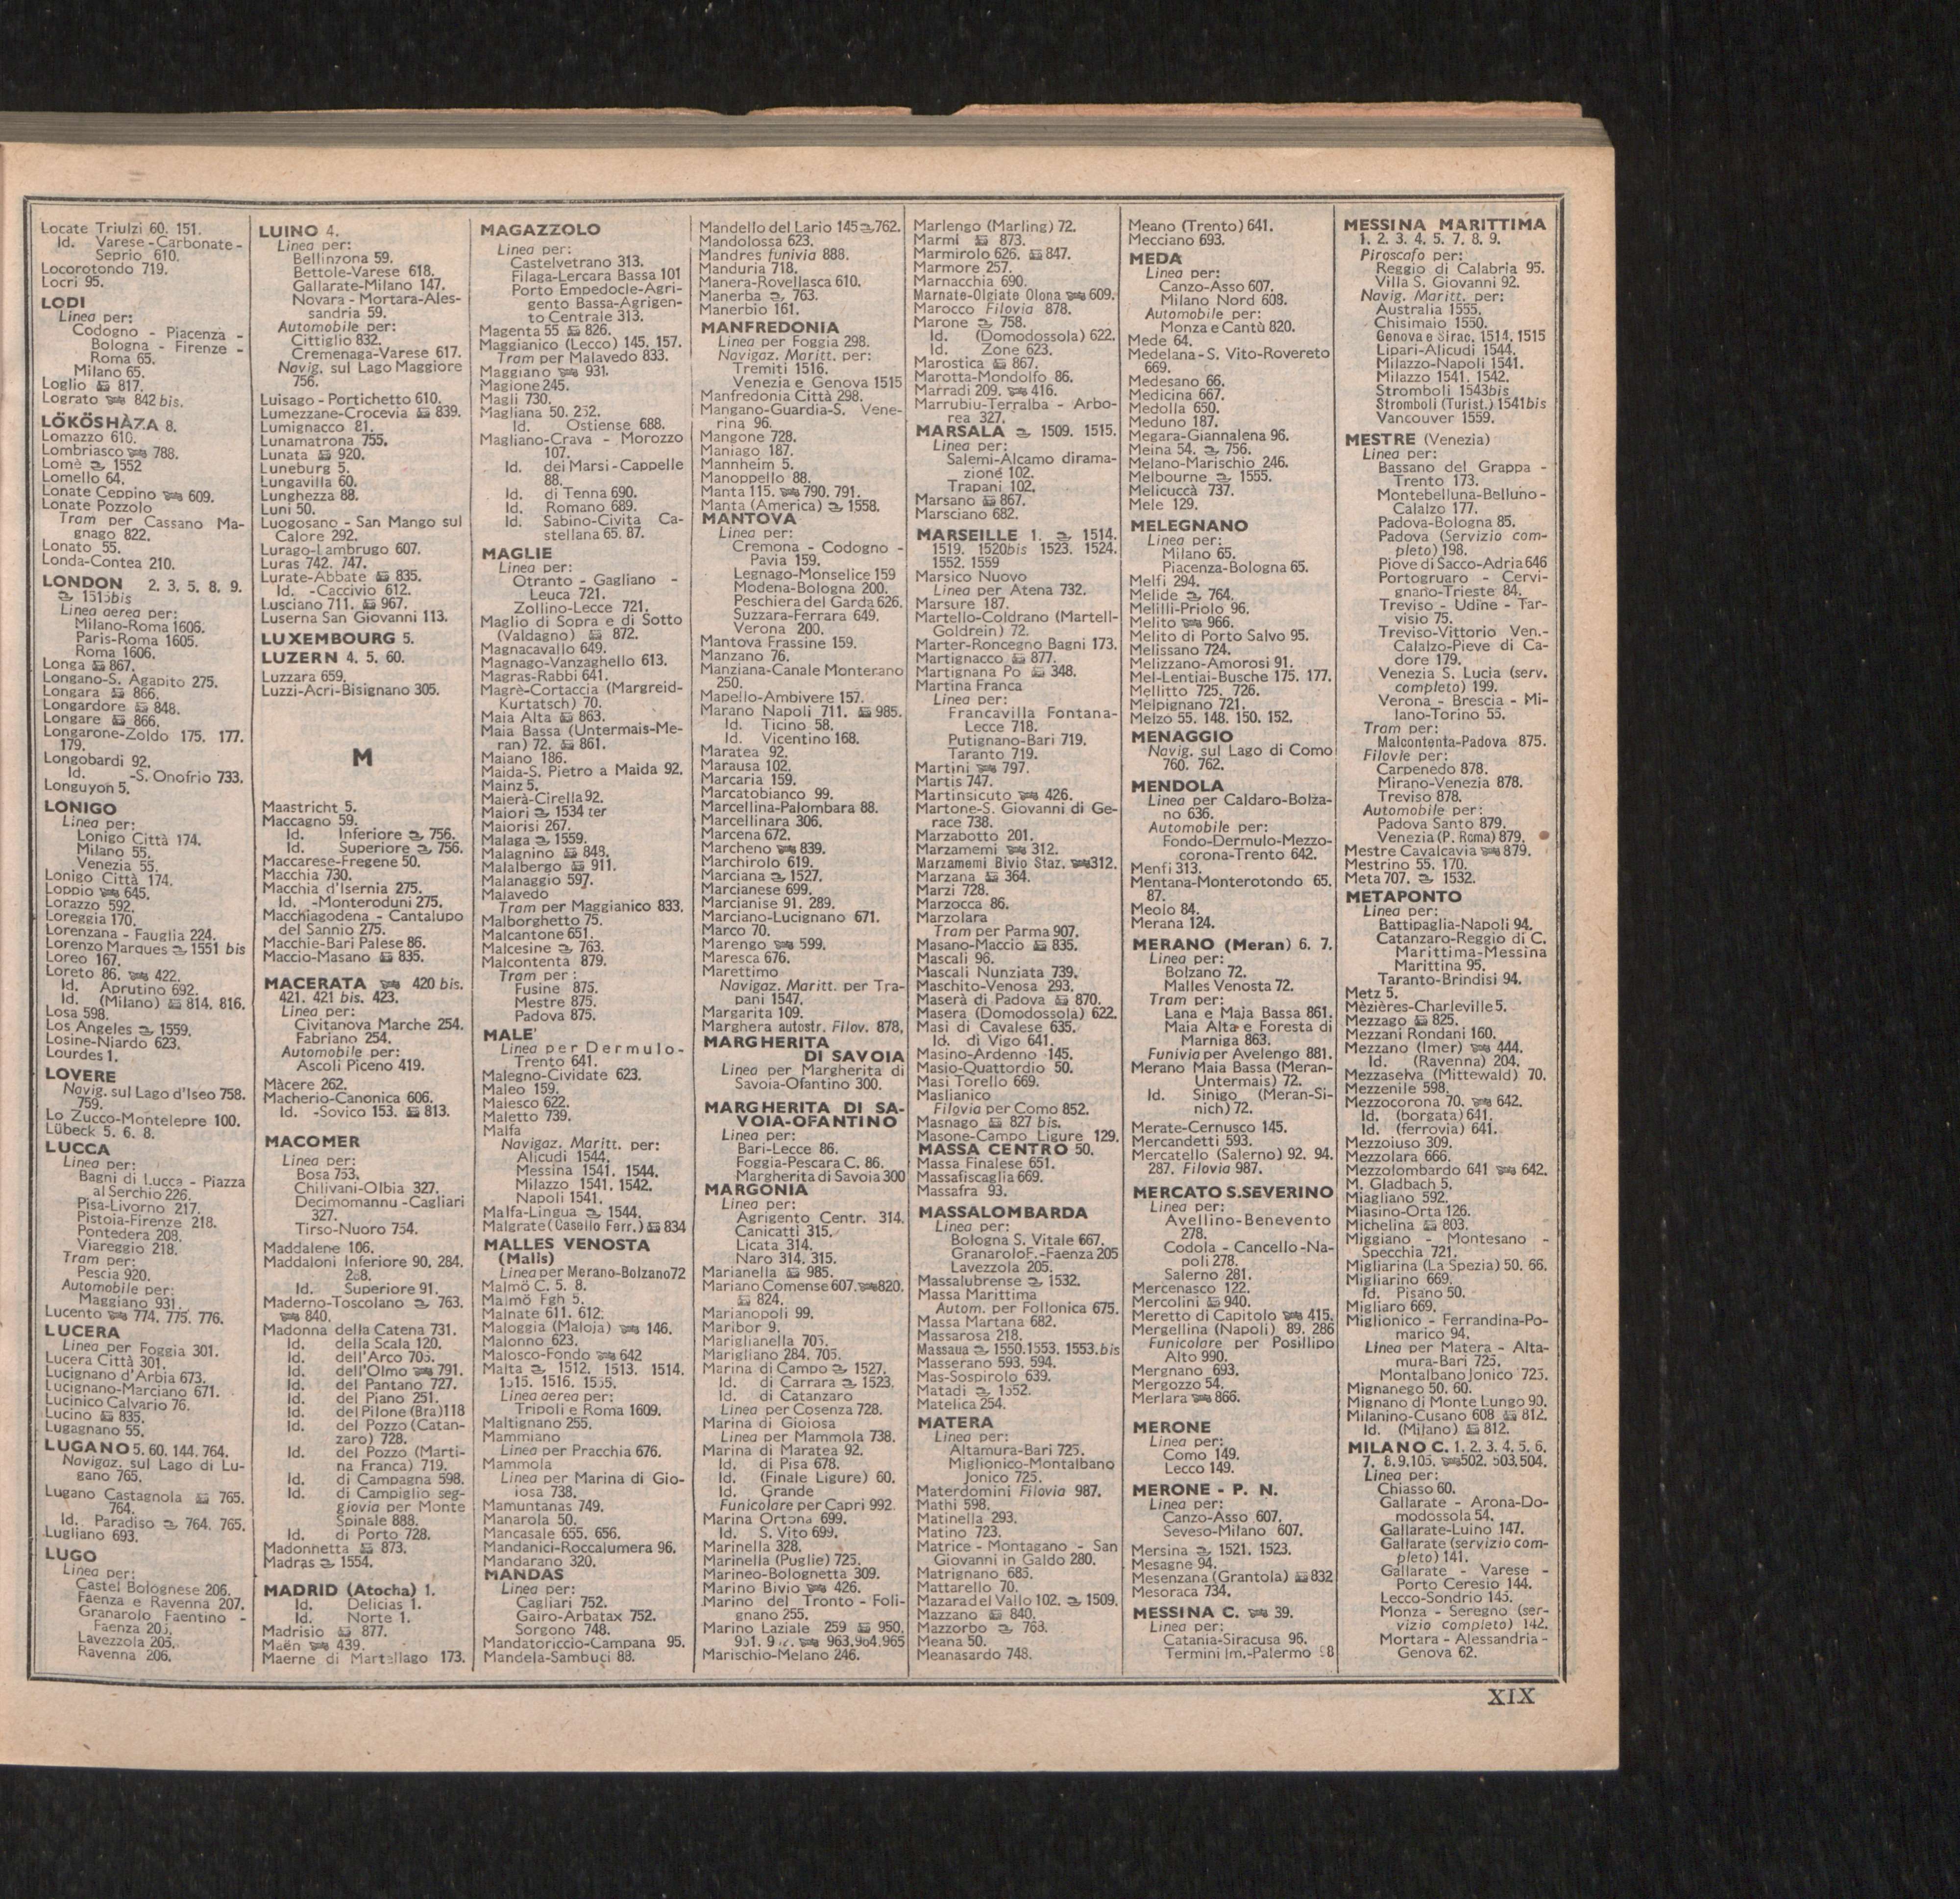 Locate Triulzi 60. 151.
Id. Varese-Carbonate-
Seprio 610.
Locorotondo 719.
Locri 95.
LODI
Linea per:
Codogno - Piacenza -
Bologna - Firenze -
Roma 65.
Milano 65.
Loglio 817.
Lograto 842 bis.
LÖKÖSHÀZA 8.
Lomazzo 610.
Lombriasco 788.
Lomè 1552
Lomello 64.
Lonate Ceppino 609.
Lonate Pozzolo
Tram per Cassano Ma-
gnago 822.
Lonato 55.
Londa-Contea 210.
LONDON 2. 3. 5. 8. 9.
1515bis
Linea aerea per:
Milano-Roma 1606.
Paris-Roma 1605.
Roma 1606.
Longa 867.
Longano-S. Agapito 275.
Longara 866.
Longardore 848.
Longare 866.
Longarone-Zoldo 175. 177.
179.
Longobardi 92.
Id. -S. Onofrio 733.
Longuyon 5.
LONIGO
Linea per:
Lonigo Città 174.
Milano 55.
Venezia 55.
Lonigo Città 174.
Loppio 645.
Lorazzo 592.
Loreggia 170.
Lorenzana - Fauglia 224.
Lorenzo Marques 1551 bis
Loreo 167.
Loreto 86. 422.
Id. Aprutino 692.
Id. (Milano) 814. 816.
Losa 598.
Los Angeles 1559.
Losine-Niardo 623.
Lourdes 1.
LOVERE
Navig. sul Lago d'Iseo 758.
759.
Lo Zucco-Montelepre 100.
Lübeck 5. 6. 8.
LUCCA
Linea per:
Bagni di Lucca - Piazza
al Serchio 226.
Pisa-Livorno 217.
Pistoia-Firenze 218.
Pontedera 208.
Viareggio 218.
Tram per:
Pescia 920.
Automobile per:
Maggiano 931.
Lucento 774. 775. 776.
LUCERA
Linea per Foggia 301.
Lucera Città 301.
Lucignano d'Arbia 673.
Lucignano-Marciano 671.
Lucinico Calvario 76.
Lucino 835.
Lugagnano 55.
LUGANO 5. 60. 144. 764.
Navigaz. sul Lago di Lu-
gano 765.
Lugano Castagnola 765.
764.
Id. Paradiso 764. 765.
Lugliano 693.
LUGO
Linea per:
Castel Bolognese 206.
Faenza e Ravenna 207.
Granarolo Faentino -
Faenza 205.
Lavezzola 205.
Ravenna 206.
LUINO 4.
Linea per:
Bellinzona 59.
Bettole-Varese 618.
Gallarate-Milano 147.
Novara - Mortara-Ales-
sandria 59.
Automobile per:
Cittiglio 832.
Cremenaga-Varese 617.
Navig. sul Lago Maggiore
756.
Luisago - Portichetto 610.
Lumezzane-Crocevia 839.
Lumignacco 81.
Lunamatrona 755.
Lunata 920.
Luneburg 5.
Lungavilla 60.
Lunghezza 88.
Luni 50.
Luogosano - San Mango sul
Calore 292.
Lurago-Lambrugo 607.
Luras 742. 747.
Lurate-Abbate 835.
Id. -Caccivio 612.
Lusciano 711. 967.
Luserna San Giovanni 113.
LUXEMBOURG 5.
LUZERN 4. 5. 60.
Luzzara 659.
Luzzi-Acri-Bisignano 305.
M
Maastricht 5.
Maccagno 59.
Id. Inferiore 756.
Id. Superiore 756.
Maccarese-Fregene 50.
Macchia 730.
Macchia d'Isernia 275.
Id. -Monteroduni 275.
Macchiagodena - Cantalupo
del Sannio 275.
Macchie-Bari Palese 86.
Maccio-Masano 835.
MACERATA 420 bis.
421. 421 bis. 423.
Linea per:
Civitanova Marche 254.
Fabriano 254.
Automobile per:
Ascoli Piceno 419.
Màcere 262.
Macherio-Canonica 606.
Id. -Sovico 153. 813.
MACOMER
Linea per:
Bosa 753.
Chilivani-Olbia 327.
Decimomannu -Cagliari
327.
Tirso-Nuoro 754.
Maddalene 106.
Maddaloni Inferiore 90. 284.
288.
Id. Superiore 91.
Maderno-Toscolano 763.
840.
Madonna della Catena 731.
Id. della Scala 120.
Id. dell'Arco 705.
Id. dell'Olmo 791.
Id. del Pantano 727.
Id. del Piano 251.
Id. del Pilone (Bra)118
Id. del Pozzo (Catan-
zaro) 728.
Id. del Pozzo (Marti-
na Franca) 719.
Id. di Campagna 598.
Id. di Campiglio seg-
giovia per Monte
Spinale 888.
Id. di Porto 728.
Madonnetta 873.
Madras 1554.
MADRID (Atocha) 1.
Id. Delicias 1.
Id. Norte 1.
Madrisio 877.
Maën 439.
Maerne di Martellago 173.
MAGAZZOLO
Linea per:
Castelvetrano 313.
Filaga-Lercara Bassa 101
Porto Empedocle-Agri-
gento Bassa-Agrigen-
to Centrale 313.
Magenta 55 826.
Maggianico (Lecco) 145. 157.
Tram per Malavedo 833.
Maggiano 931.
Magione 245.
Magli 730.
Magliana 50. 252.
Id. Ostiense 688.
Magliano-Crava - Morozzo
107.
Id. dei Marsi-Cappelle
88.
Id. di Tenna 690.
Id. Romano 689.
Id. Sabino-Civita Ca-
stellana 65. 87.
MAGLIE
Linea per:
Otranto - Gagliano -
Leuca 721.
Zollino-Lecce 721.
Maglio di Sopra e di Sotto
(Valdagno) 872.
Magnacavallo 649.
Magnago-Vanzaghello 613.
Magras-Rabbi 641.
Magrè-Cortaccia (Margreid-
Kurtatsch) 70.
Maia Alta 863.
Maia Bassa (Untermais-Me-
ran) 72. 861.
Maiano 186.
Maida-S. Pietro a Maida 92.
Mainz 5.
Maierà-Cirella 92.
Maiori 1534 ter
Maiorisi 267.
Malaga 1559.
Malagnino 848.
Malalbergo 911.
Malanaggio 597.
Malavedo
Tram per Maggianico 833.
Malborghetto 75.
Malcantone 651.
Malcesine 763.
Malcontenta 879.
Tram per:
Fusine 875.
Mestre 875.
Padova 875.
MALE'
Linea per Dermulo-
Trento 641.
Malegno-Cividate 623.
Maleo 159.
Malesco 622.
Maletto 739.
Malfa
Navigaz. Maritt. per:
Alicudi 1544.
Messina 1541. 1544.
Milazzo 1541. 1542.
Napoli 1541.
Malfa-Lingua 1544.
Malgrate (Casello Ferr.) 834
MALLES VENOSTA
(Malis)
Linea per Merano-Bolzano72
Malmö C. 5. 8.
Malmö Fgh 5.
Malnate 611. 612.
Maloggia (Maloja) 146.
Malonno 623.
Malosco-Fondo 642
Malta 1512. 1513. 1514.
1515. 1516. 1555.
Linea aerea per:
Tripoli e Roma 1609.
Maltignano 255.
Mammiano
Linea per Pracchia 676.
Mammola
Linea per Marina di Gio-
iosa 738.
Mamuntanas 749.
Manarola 50.
Mancasale 655. 656.
Mandanici-Roccalumera 96.
Mandarano 320.
MANDAS
Linea per:
Cagliari 752.
Gairo-Arbatax 752.
Sorgono 748.
Mandatoriccio-Campana 95.
Mandela-Sambuci 88.
Mandello del Lario 145 762.
Mandolossa 623.
Mandres funivia 888.
Manduria 718.
Manera-Rovellasca 610.
Manerba 763.
Manerbio 161.
MANFREDONIA
Linea per Foggia 298.
Navigaz. Maritt. per:
Tremiti 1516.
Venezia e Genova 1515
Manfredonia Città 298.
Mangano-Guardia-S. Vene-
rina 96.
Mangone 728.
Maniago 187.
Mannheim 5.
Manoppello 88.
Manta 115. 790. 791.
Manta (America) 1558.
MANTOVA
Linea per:
Cremona - Codogno -
Pavia 159.
Legnago-Monselice 159
Modena-Bologna 200.
Peschiera del Garda 626.
Suzzara-Ferrara 649.
Verona 200.
Mantova Frassine 159.
Manzano 76.
Manziana-Canale Monterano
250.
Mapello-Ambivere 157.
Marano Napoli 711. 985.
Id. Ticino 58.
Id. Vicentino 168.
Maratea 92.
Marausa 102.
Marcaria 159.
Marcatobianco 99.
Marcellina-Palombara 88.
Marcellinara 306.
Marcena 672.
Marcheno 839.
Marchirolo 619.
Marciana 1527.
Marcianese 699.
Marcianise 91. 289.
Marciano-Lucignano 671.
Marco 70.
Marengo 599.
Maresca 676.
Marettimo
Navigaz. Maritt. per Tra-
pani 1547.
Margarita 109.
Marghera autostr. Filov. 878.
MARGHERITA
DI SAVOIA
Linea per Margherita di
Savoia-Ofantino 300.
MARGHERITA DI SA-
VOIA-OFANTINO
Linea per:
Bari-Lecce 86.
Foggia-Pescara C. 86.
Margherita di Savoia 300
MARGONIA
Linea per:
Agrigento Centr. 314.
Canicatti 315.
Licata 314.
Naro 314. 315.
Marianella 985.
Mariano Comense 607. 820.
824.
Marianopoli 99.
Maribor 9.
Mariglianella 705.
Marigliano 284. 705.
Marina di Campo 1527.
Id. di Carrara 1523.
Id. di Catanzaro
Linea per Cosenza 728.
Marina di Gioiosa
Linea per Mammola 738.
Marina di Maratea 92.
Id. di Pisa 678.
Id. (Finale Ligure) 60.
Id. Grande
Funicolare per Capri 992.
Marina Ortona 699.
Id. S. Vito 699.
Marinella 328.
Marinella (Puglie) 725.
Marineo-Bolognetta 309.
Marino Bivio 426.
Marino del Tronto - Foli-
gnano 255.
Marino Laziale 259 950.
951. 963.964.965
Marischio-Melano 246.
Marlengo (Marling) 72.
Marmi 873.
Marmirolo 626. 847.
Marmore 257.
Marnacchia 690.
Marnate-Olgiate Olona 609.
Marocco Filovia 878.
Marone 758.
Id. (Domodossola) 622.
Id. Zone 623.
Marostica 867.
Marotta-Mondolfo 86.
Marradi 209. 416.
Marrubiu-Terralba - Arbo-
rea 327.
MARSALA 1509. 1515.
Linea per:
Salemi-Alcamo dirama-
zione 102.
Trapani 102.
Marsano 867.
Marsciano 682.
MARSEILLE 1. 1514.
1519. 1520bis 1523. 1524.
1552. 1559
Marsico Nuovo
Linea per Atena 732.
Marsure 187.
Martello-Coldrano (Martell-
Goldrein) 72.
Marter-Roncegno Bagni 173.
Martignacco 877.
Martignana Po 348.
Martina Franca
Linea per:
Francavilla Fontana-
Lecce 718.
Putignano-Bari 719.
Taranto 719.
Martini 797.
Martis 747.
Martinsicuro 426.
Martone-S. Giovanni di Ge-
race 738.
Marzabotto 201.
Marzamemi 312.
Marzamemi Bivio Staz. 312.
Marzana 364.
Marzi 728.
Marzocca 86.
Marzolara
Tram per Parma 907.
Masano-Maccio 835.
Mascali 96.
Mascali Nunziata 739.
Maschito-Venosa 293.
Maserà di Padova 870.
Masera (Domodossola) 622.
Masi di Cavalese 635.
Id. di Vigo 641.
Masino-Ardenno 145.
Masio-Quattordio 50.
Masi Torello 669.
Maslianico
Filovia per Como 852.
Masnago 827 bis.
Masone-Campo Ligure 129.
MASSA CENTRO 50.
Massa Finalese 651.
Massafiscaglia 669.
Massafra 93.
MASSALOMBARDA
Linea per:
Bologna S. Vitale 667.
Granarolo F.-Faenza 205
Lavezzola 205.
Massalubrense 1532.
Massa Marittima
Autom. per Follonica 675.
Massa Martana 682.
Massarosa 218.
Massaua 1550.1553. 1553.bis
Masserano 593. 594.
Mas-Sospirolo 639.
Matadi 1552.
Matelica 254.
MATERA
Linea per:
Altamura-Bari 725.
Miglionico-Montalbano
Jonico 725.
Materdomini Filovia 987.
Mathi 598.
Matinella 293.
Matino 723.
Matrice - Montagano - San
Giovanni in Galdo 280.
Matrignano 685.
Mattarello 70.
Mazara del Vallo 102. 1509.
Mazzano 840.
Mazzorbo 768.
Meana 50.
Meanasardo 748.
Meano (Trento) 641.
Mecciano 693.
MEDA
Linea per:
Canzo-Asso 607.
Milano Nord 608.
Automobile per:
Monza e Cantù 820.
Mede 64.
Medelana-S. Vito-Rovereto
669.
Medesano 66.
Medicina 667.
Medolla 650.
Meduno 187.
Megara-Giannalena 96.
Meina 54. 756.
Melano-Marischio 246.
Melbourne 1555.
Melicuccà 737.
Mele 129.
MELEGNANO
Linea per:
Milano 65.
Piacenza-Bologna 65.
Melfi 294.
Melide 764.
Melilli-Priolo 96.
Melito 966.
Melito di Porto Salvo 95.
Melissano 724.
Melizzano-Amorosi 91.
Mel-Lentiai-Busche 175. 177.
Mellitto 725. 726.
Melpignano 721.
Melzo 55. 148. 150. 152.
MENAGGIO
Navig. sul Lago di Como
760. 762.
MENDOLA
Linea per Caldaro-Bolza-
no 636.
Automobile per:
Fondo-Dermulo-Mezzo-
corona-Trento 642.
Menfi 313.
Mentana-Monterotondo 65.
87.
Meolo 84.
Merana 124.
MERANO (Meran) 6. 7.
Linea per:
Bolzano 72.
Malles Venosta 72.
Tram per:
Lana e Maja Bassa 861.
Maia Alta e Foresta di
Marniga 863.
Funivia per Avelengo 881.
Merano Maia Bassa (Meran-
Untermais) 72.
Id. Sinigo (Meran-Si-
nich) 72.
Merate-Cernusco 145.
Mercandetti 593.
Mercatello (Salerno) 92. 94.
287. Filovia 987.
MERCATO S.SEVERINO
Linea per:
Avellino-Benevento
278.
Codola - Cancello -Na-
poli 278.
Salerno 281.
Mercenasco 122.
Mercolini 940.
Meretto di Capitolo 415.
Mergellina (Napoli) 89. 286
Funicolare per Posillipo
Alto 990.
Mergnano 693.
Mergozzo 54.
Merlara 866.
MERONE
Linea per:
Como 149.
Lecco 149.
MERONE - P. N.
Linea per:
Canzo-Asso 607.
Seveso-Milano 607.
Mersina 1521. 1523.
Mesagne 94.
Mesenzana (Grantola) 832
Mesoraca 734.
MESSINA C. 39.
Linea per:
Catania-Siracusa 96.
Termini Im.-Palermo 98
MESSINA MARITTIMA
1. 2. 3. 4. 5. 7. 8. 9.
Piroscafo per:
Reggio di Calabria 95.
Villa S. Giovanni 92.
Navig. Maritt. per:
Australia 1555.
Chisimaio 1550.
Genova e Sirac. 1514. 1515
Lipari-Alicudi 1544.
Milazzo-Napoli 1541.
Milazzo 1541. 1542.
Stromboli 1543bis
Stromboli (Turist.) 1541bis
Vancouver 1559.
MESTRE (Venezia)
Linea per:
Bassano del Grappa -
Trento 173.
Montebelluna-Belluno -
Calalzo 177.
Padova-Bologna 85.
Padova (Servizio com-
pleto) 198.
Piove di Sacco-Adria 646
Portogruaro - Cervi-
gnano-Trieste 84.
Treviso - Udine - Tar-
visio 75.
Treviso-Vittorio Ven.-
Calalzo-Pieve di Ca-
dore 179.
Venezia S. Lucia (serv.
completo) 199.
Verona - Brescia - Mi-
lano-Torino 55.
Tram per:
Malcontenta-Padova 875.
Filovie per:
Carpenedo 878.
Mirano-Venezia 878.
Treviso 878.
Automobile per:
Padova Santo 879.
Venezia (P. Roma) 879.
Mestre Cavalcavia 879.
Mestrino 55. 170.
Meta 707. 1532.
METAPONTO
Linea per:
Battipaglia-Napoli 94.
Catanzaro-Reggio di C.
Marittima-Messina
Marittina 95.
Taranto-Brindisi 94.
Metz 5.
Mèzières-Charleville 5.
Mezzago 825.
Mezzani Rondani 160.
Mezzano (Imer) 444.
Id. (Ravenna) 204.
Mezzaselva (Mittewald) 70.
Mezzenile 598.
Mezzocorona 70. 642.
Id. (borgata) 641.
Id. (ferrovia) 641.
Mezzoiuso 309.
Mezzolara 666.
Mezzolombardo 641 642.
M. Gladbach 5.
Miagliano 592.
Miasino-Orta 126.
Michelina 803.
Miggiano - Montesano -
Specchia 721.
Migliarina (La Spezia) 50. 66.
Migliarino 669.
Id. Pisano 50.
Migliaro 669.
Miglionico - Ferrandina-Po-
marico 94.
Linea per Matera - Alta-
mura-Bari 725.
Montalbano Jonico 725.
Mignanego 50. 60.
Mignano di Monte Lungo 90.
Milanino-Cusano 608 812.
Id. (Milano) 812.
MILANO C. 1. 2. 3. 4. 5. 6.
7. 8.9.105. 502. 503.504.
Linea per:
Chiasso 60.
Gallarate - Arona-Do-
modossola 54.
Gallarate-Luino 147.
Gallarate (servizio com-
pleto) 141.
Gallarate - Varese -
Porto Ceresio 144.
Lecco-Sondrio 145.
Monza - Seregno (ser-
vizio completo) 142.
Mortara - Alessandria -
Genova 62.
XIX